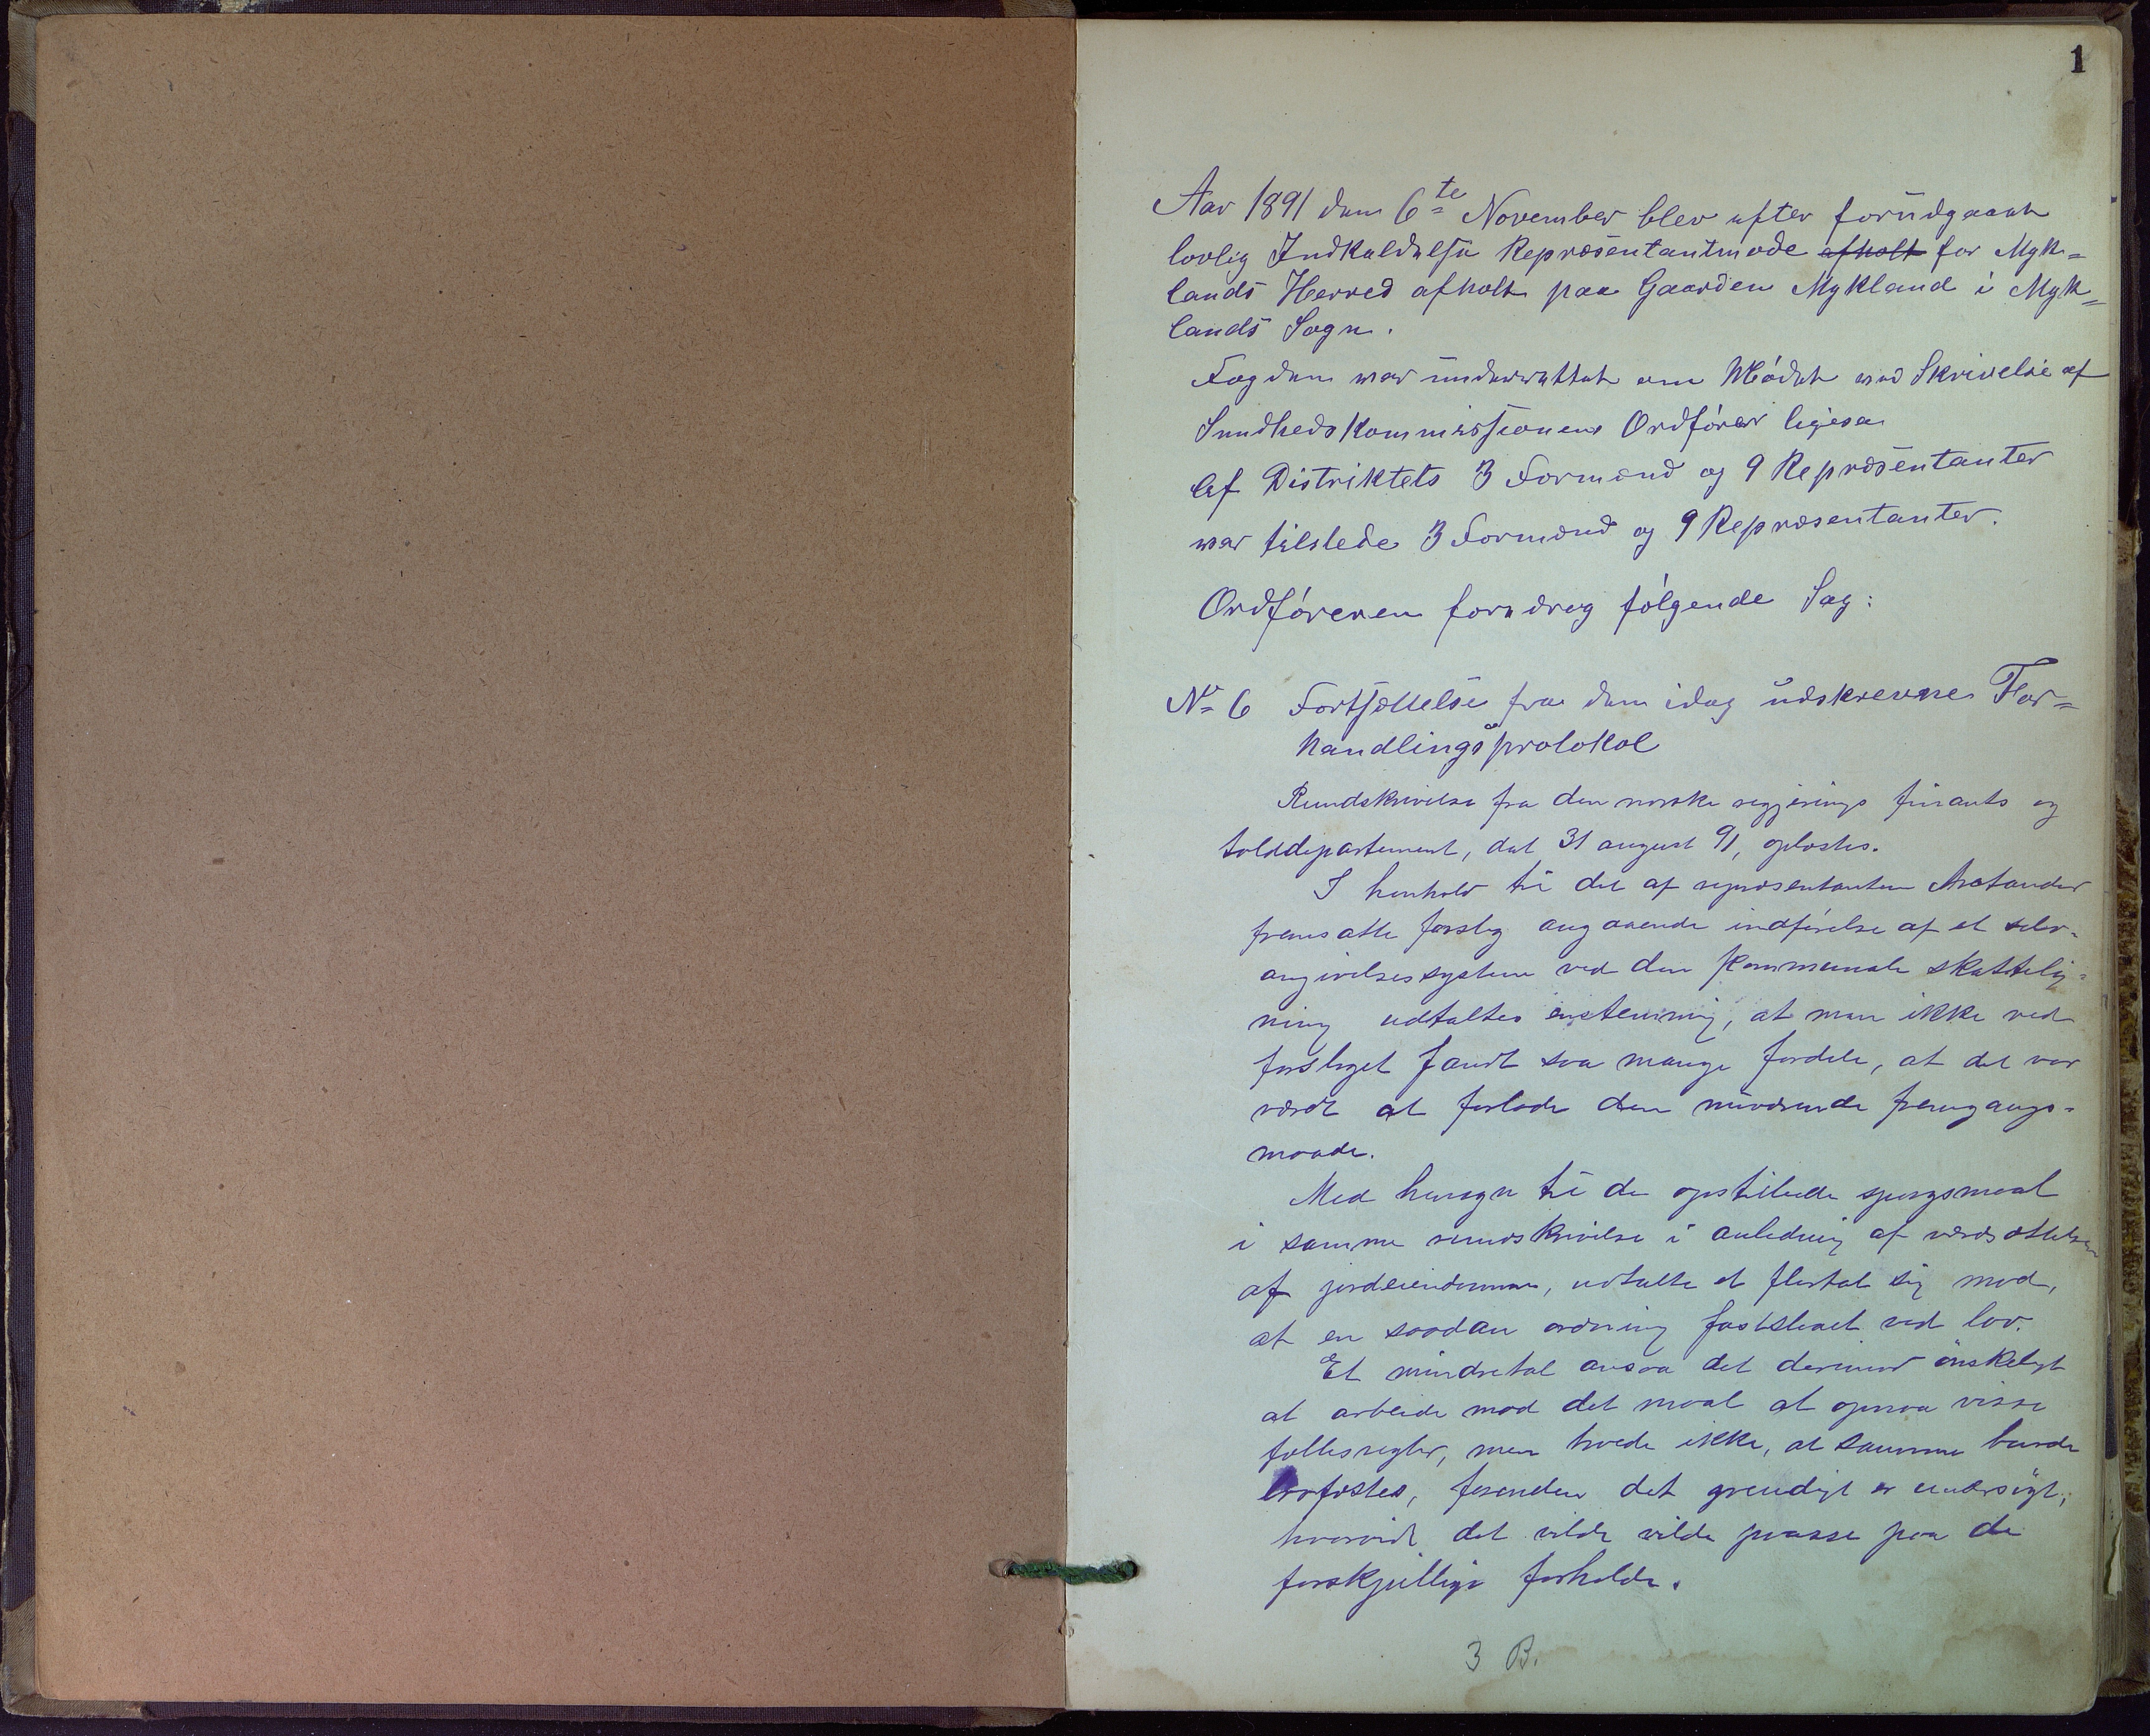 1
Aar 1891 den 6te November blev efter forudgaaet
lovlig Indkaldelse Repræsentantmøde afholt for Myk=
lands Herred afholt paa Gaarden Mykland i Myk=
lands Sogn.
Fogden war underrettet om Mødet ved Skrivelse af
Sundhedskommissionens Ordfører ligesa
Af Distriktets 3 Formænd og 9 Repræsentanter
war tilstede 3 Formænd og 9 Repræsentanter.
Ordføreren foredrog følgende Sag:
No 6 Fortsættelse fra den idag udskrevne For=
handlingsprotokol
Rundskrivelse fra den norske regjerings finants og
tolddepartement, dat 31 august 91, oplæstes.
I henhold til det af repræsentanten Arctander
fremsatte forslag angaaende indførelse af et selv-
angivelsessystem ved den kommunale skattelig=
ning udtaltes enstemmig, at man ikke ved
forslaget fandt saa mange fordele, at det var
værdt at forlade den nuværende fremgangs-
maade.
Med hensyn til de opstillede spørgsmaal
i samme rundskrivelse i anledning af værdsættelsen
af jordeiendomme, udtalte et flertal sig mod,
at en saadan ordning fastsleaet ved lov.
Et mindretal ansaa det derimod ønskeligt
at arbeide mod det maal at opnaa visse
fællesregler, men troede ikke, at samme burde
lovfæstes, forenden det grundigt er undersøgt,
hvorvidt det vilde vilde passe paa de
forskjellige forholde.
3 B.